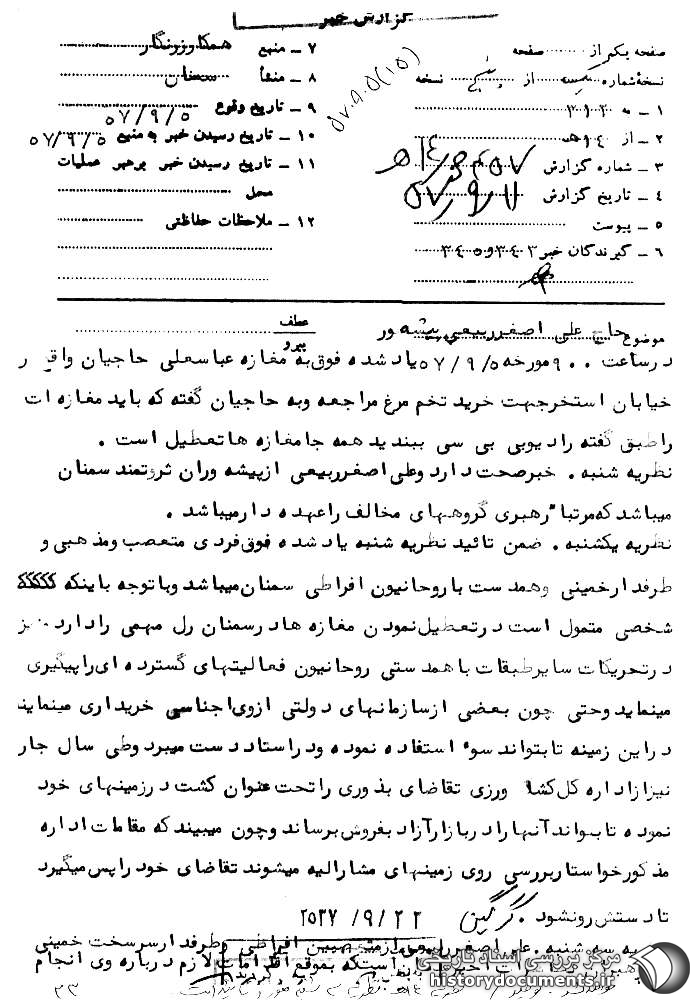 گزارش خبر
صفحه یکم از ...... صفحه
نسخه شماره یک از پنج نسخه
۱ - به ۳۱۲
۲ - از ۱۴ هـ
۳ - شماره گزارش
۴ - تاریخ گزارش ۵۷/۹/۱۱
۵ - پیوست
۶ - گیرندگان خبر ۳۴۳ و ۳۴۵
۷ - منبع همکار روزنگار
۸ - منشأ سمنان
۹ - تاریخ وقوع ۵۷/۹/۵
۱۰ - تاریخ رسیدن خبر به منبع ۵۷/۹/۵
۱۱ - تاریخ رسیدن خبر برهبر عملیات
محل
۱۲ - ملاحظات حفاظتی
موضوع حاج علی اصغر ربیعی پیشه ور
عطف
پیرو
در ساعت ۹۰۰ مورخه ۵۷/۹/۵ یاد شده فوق به مغازه عباسعلی حاجیان واقع در
خیابان استخر جهت خرید تخم مرغ مراجعه و به حاجیان گفته که باید مغازه ات
را طبق گفته رادیو بی بی سی ببندید همه جا مغازه ها تعطیل است .
نظریه شنبه . خبر صحت دارد و علی اصغر ربیعی از پیشه وران ثروتمند سمنان
میباشد که مرتبا" رهبری گروههای مخالف را عهده دار میباشد .
نظریه یکشنبه . ضمن تائید نظریه شنبه یاد شده فوق فردی متعصب و مذهبی و
طرفدار خمینی و همدست با روحانیون افراطی سمنان میباشد و با توجه باینکه
شخصی متمول است در تعطیل نمودن مغازه ها در سمنان رل مهمی را دارد
در تحریکات سایر طبقات با همدستی روحانیون فعالیتهای گسترده ای را پیگیری
مینماید و حتی چون بعضی از سازمانهای دولتی از وی اجناسی خریداری مینمایند
در این زمینه تا بتواند سوء استفاده نموده و در استاد دست میبرد و طی سال جار
نیز از اداره کل کشاورزی تقاضای بذوری را تحت عنوان کشت در زمینهای خود
نموده تا بتواند آنها را در بازار آزاد بفروش برساند و چون میبیند که مقامات اداره
مذکور خواستار بررسی روی زمینهای مشارالیه میشوند تقاضای خود را پس میگیرد
تا دستش رو نشود . گرگین ۲۵۳۷/۹/۲۲
نظریه سه شنبه . علی اصغر ربیعی از متعصبین افراطی و طرفدار سرسخت خمینی
است که بموقع اقدامات لازم درباره وی انجام
مرکز بررسی اسناد تاریخی
historydocuments.ir